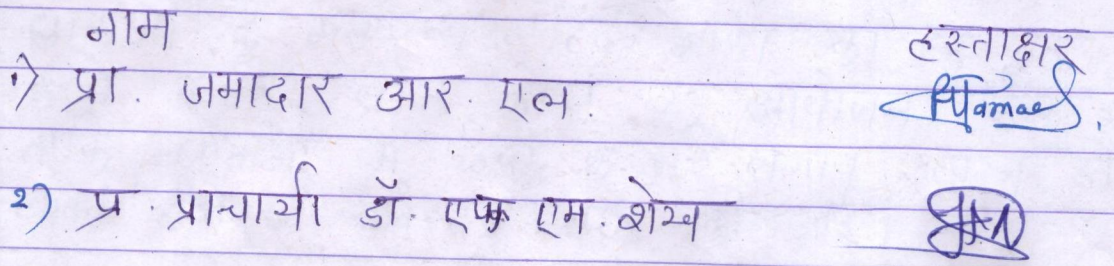 नाम हस्ताक्षर
१) प्रा. जमादार आर. एल.
२) प्र. प्राचार्या डॉ. एफ एम. शेख